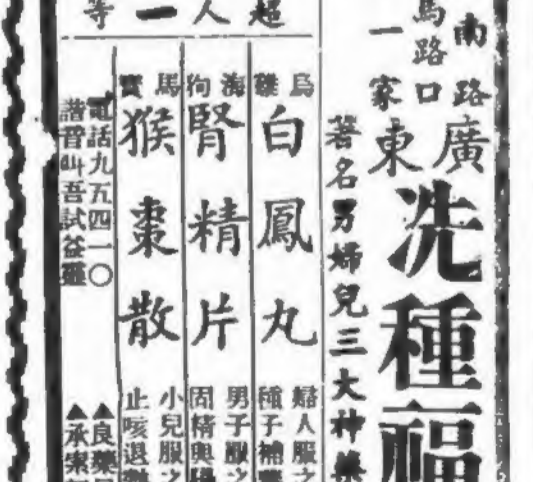 超人一等
南路
馬路口
一家
廣東
冼種福
著名男婦兒三大神藥
烏雞
白鳳丸
婦人服之
種子補
海狗
腎精片
男子服之
固精興陽
馬寶
猴棗散
小兒服之
止咳退
電話九五四一〇
諧音叫吾試益
▲良藥
▲承索